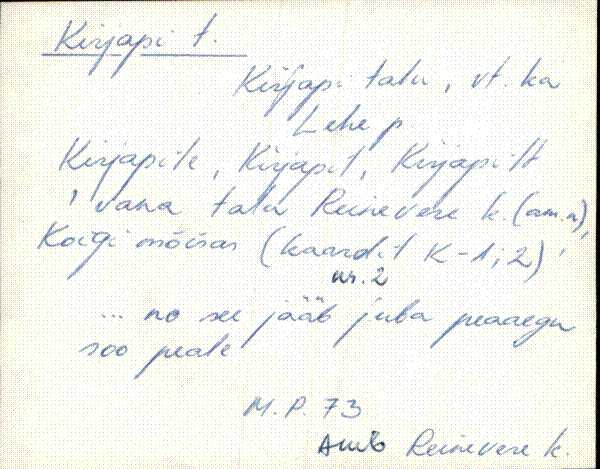 Kirjapi t.
Kirjapi talu, vt. ka
Lehe p
Kirjapile, Kirjapit, Kirjapilt
, vana talu Reinevere k. (am.n),
Koigi mõisas (kaardit K-1; 2),
nr. 2
... no see jääb juba peaaegu
soo peale
M. P. 73
Amb Reinevere k.